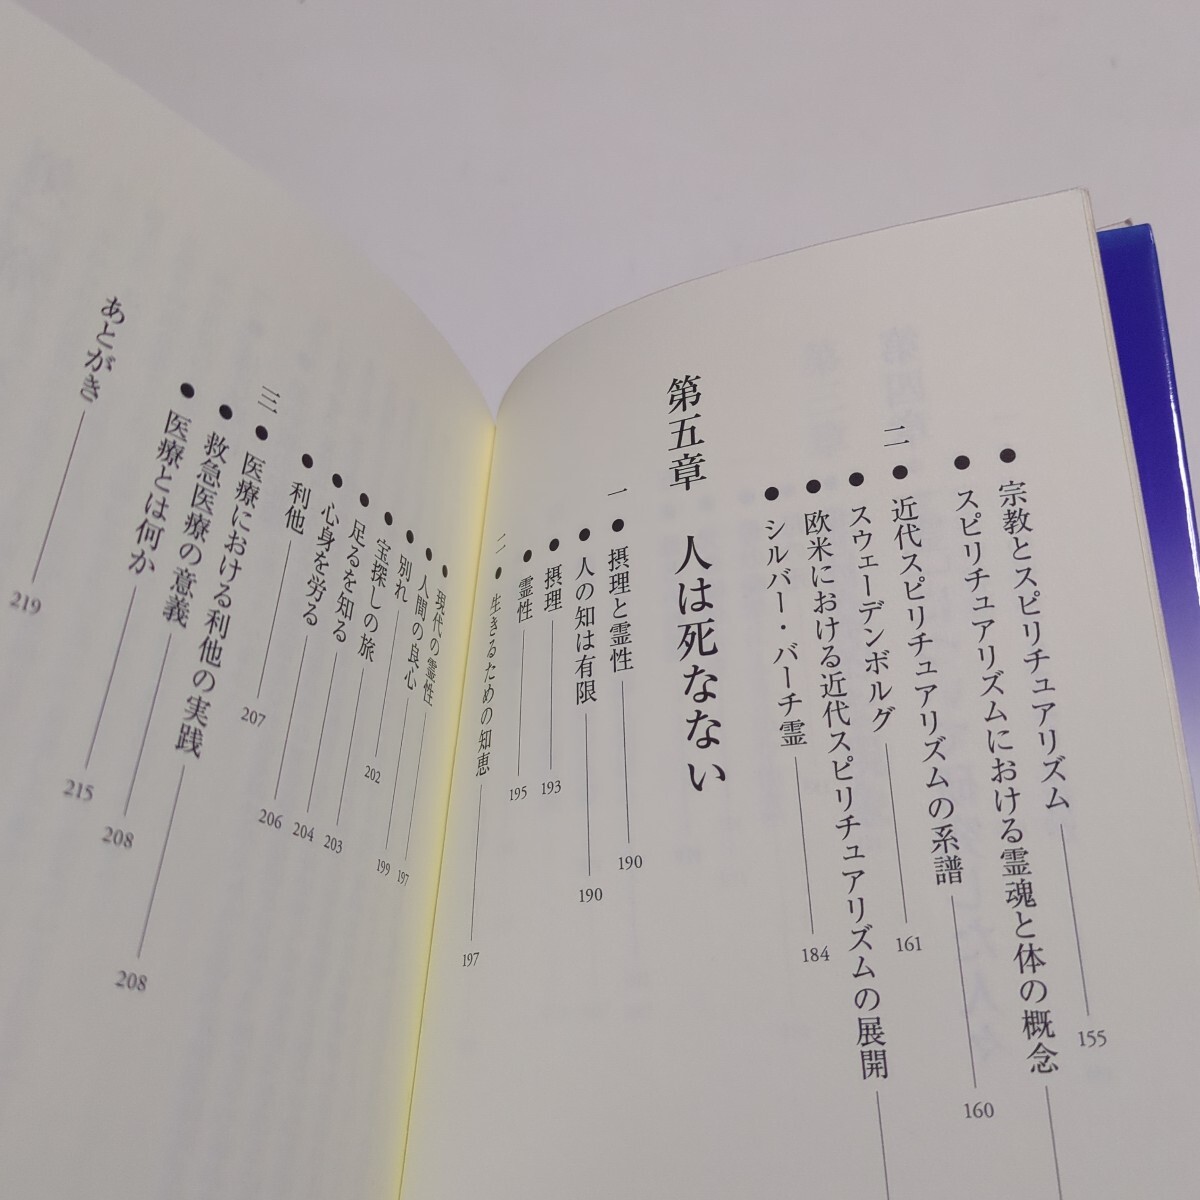 ●宗教とスピリチュアリズム 155
●スピリチュアリズムにおける霊魂と体の概念
二 ●近代スピリチュアリズムの系譜 160
●スウェーデンボルグ 161
●欧米における近代スピリチュアリズムの展開
●シルバー・バーチ霊 184
第五章 人は死なない
一 ●摂理と霊性 190
●人の知は有限 190
●摂理 193
●霊性 195
二 ●生きるための知恵 197
●現代の霊性 197
●人間の良心 199
●別れ 202
●宝探しの旅 203
●足るを知る 204
●心身を労る 206
●利他 207
三 ●医療における利他の実践 208
●救急医療の意義 208
●医療とは何か 215
あとがき 219